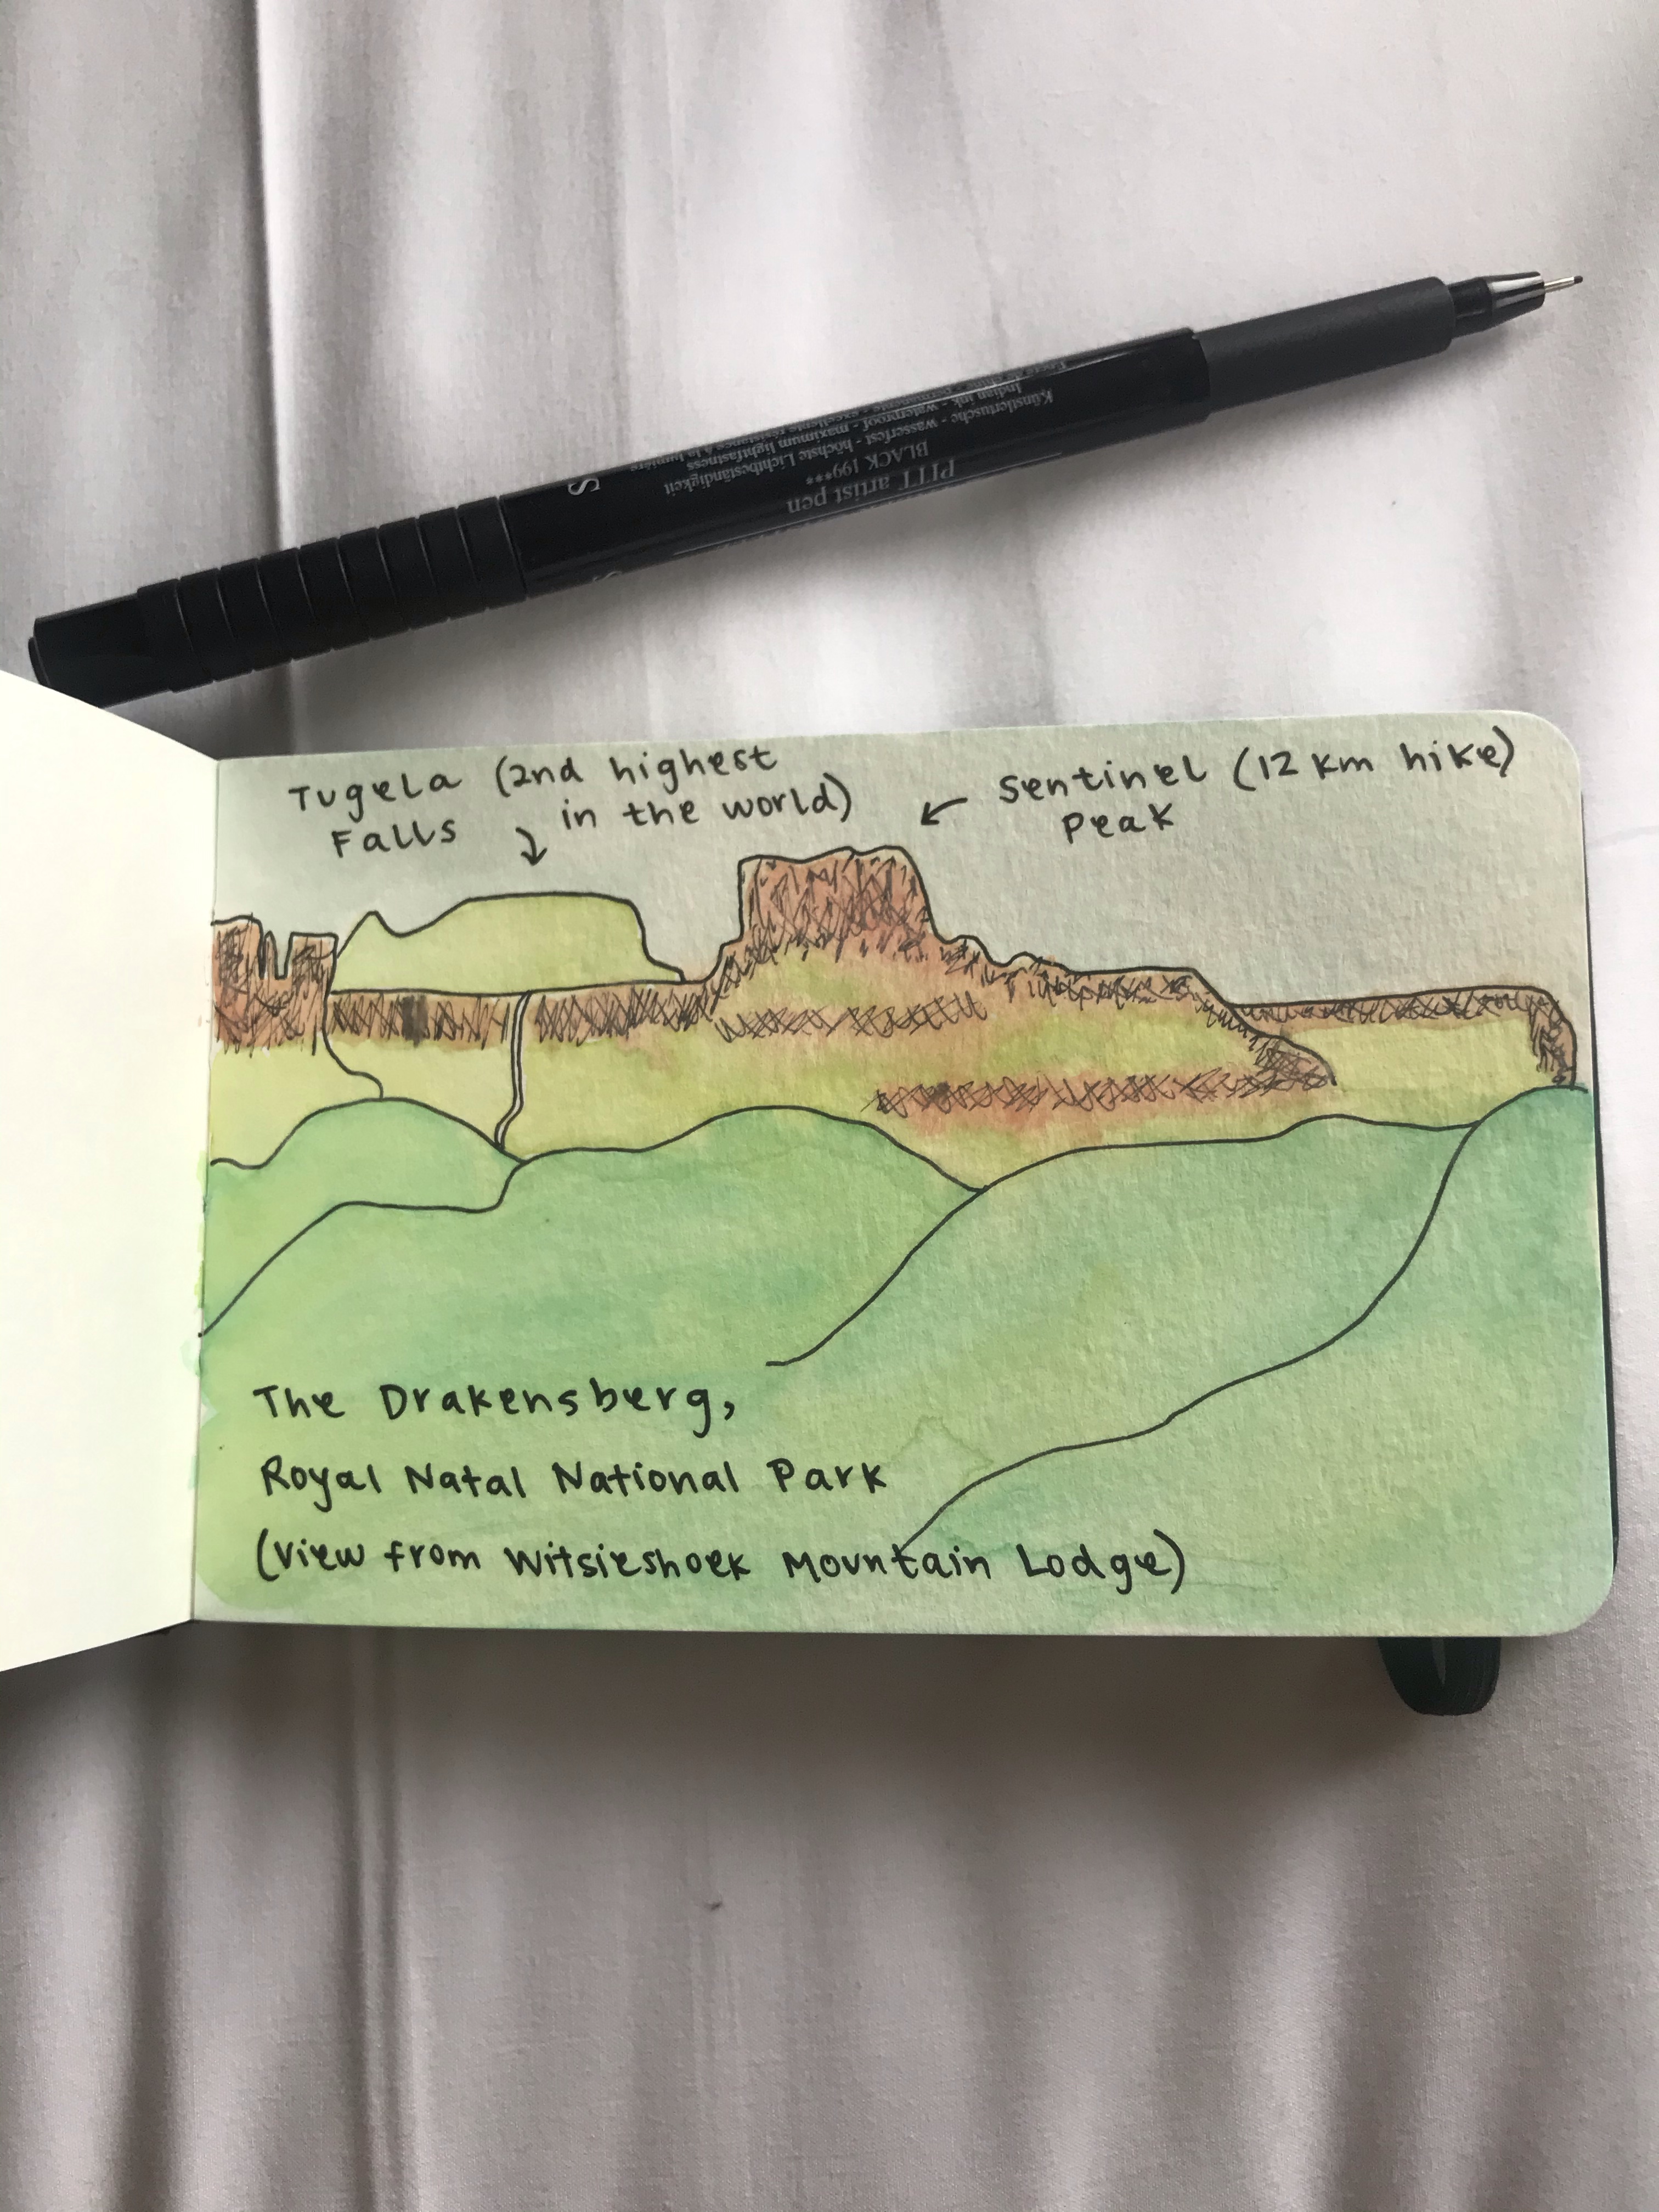 Künstlertusche - wasserfest - höchste Lichtbeständigkeit
Indian ink - waterproof - maximum lightfastness
BLACK 199***
PITT artist pen
S
Tugela (2nd highest
Falls in the world)
Sentinel (12 km hike)
Peak
The Drakensberg,
Royal Natal National Park
(view from Witsieshoek Mountain Lodge)